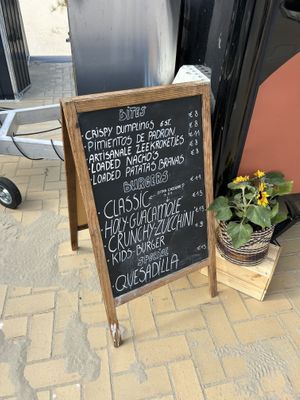 BITES
• CRISPY DUMPLINGS 6ST. €8
• PIMIENTOS DE PADRON €8
• ARTISANALE ZEEKROKETJES €11
• LOADED NACHOS €8
• LOADED PATATAS BRAVAS
BURGERS
• CLASSIC €15
• HOLY GUACAMOLE €15
• CRUNCHY ZUCCHINI
• KIDS BURGER
SPECIAL
QUESADILLA €15